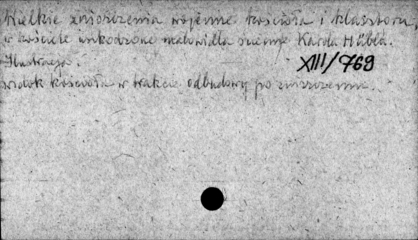 Wielkie zniszczenia wojenne kościoła i klasztoru,
w kościele uszkodzone malowidła ścienne Karola Hübla.
Ilustracja.
XIII/769
widok kościoła w trakcie odbudowy po zniszczeniu.